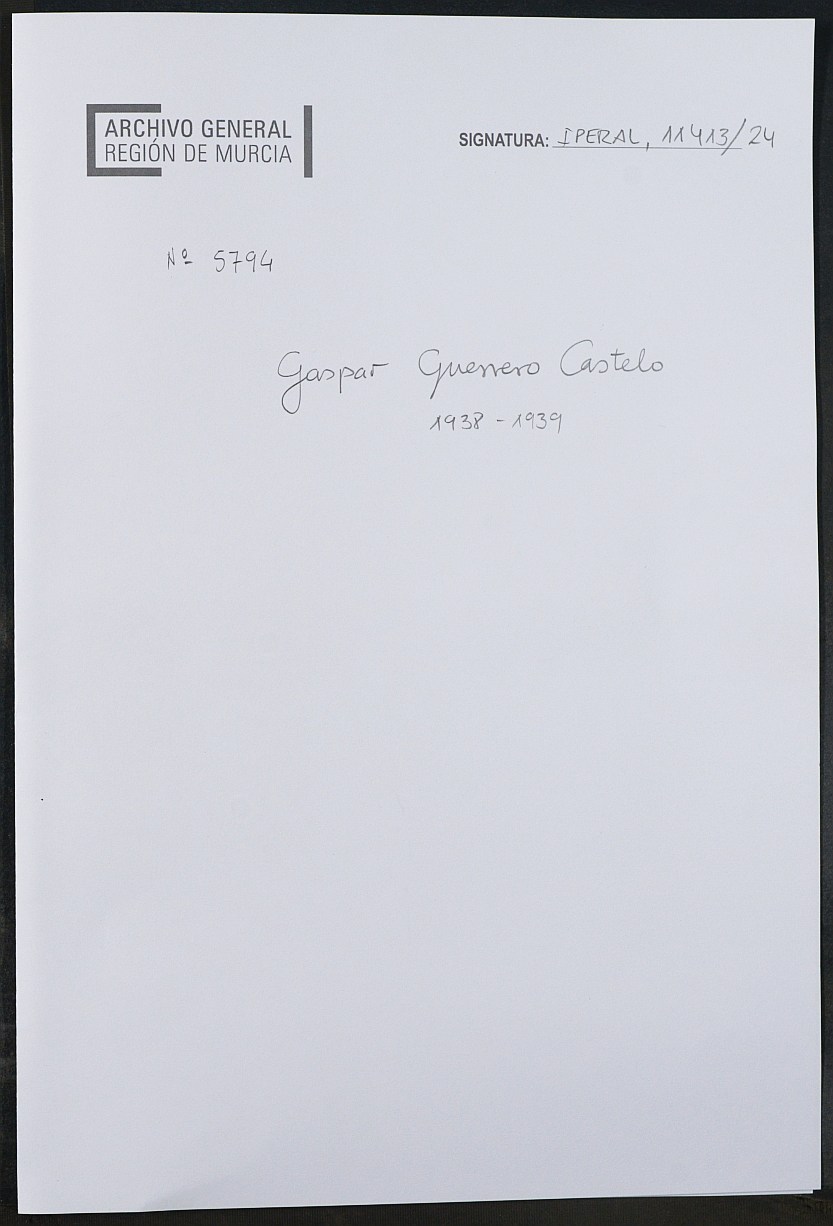 ARCHIVO GENERAL
REGIÓN DE MURCIA
SIGNATURA: IPERAL, 11413/24
Nº 5794
Gaspar Guerrero Castelo
1938 - 1939